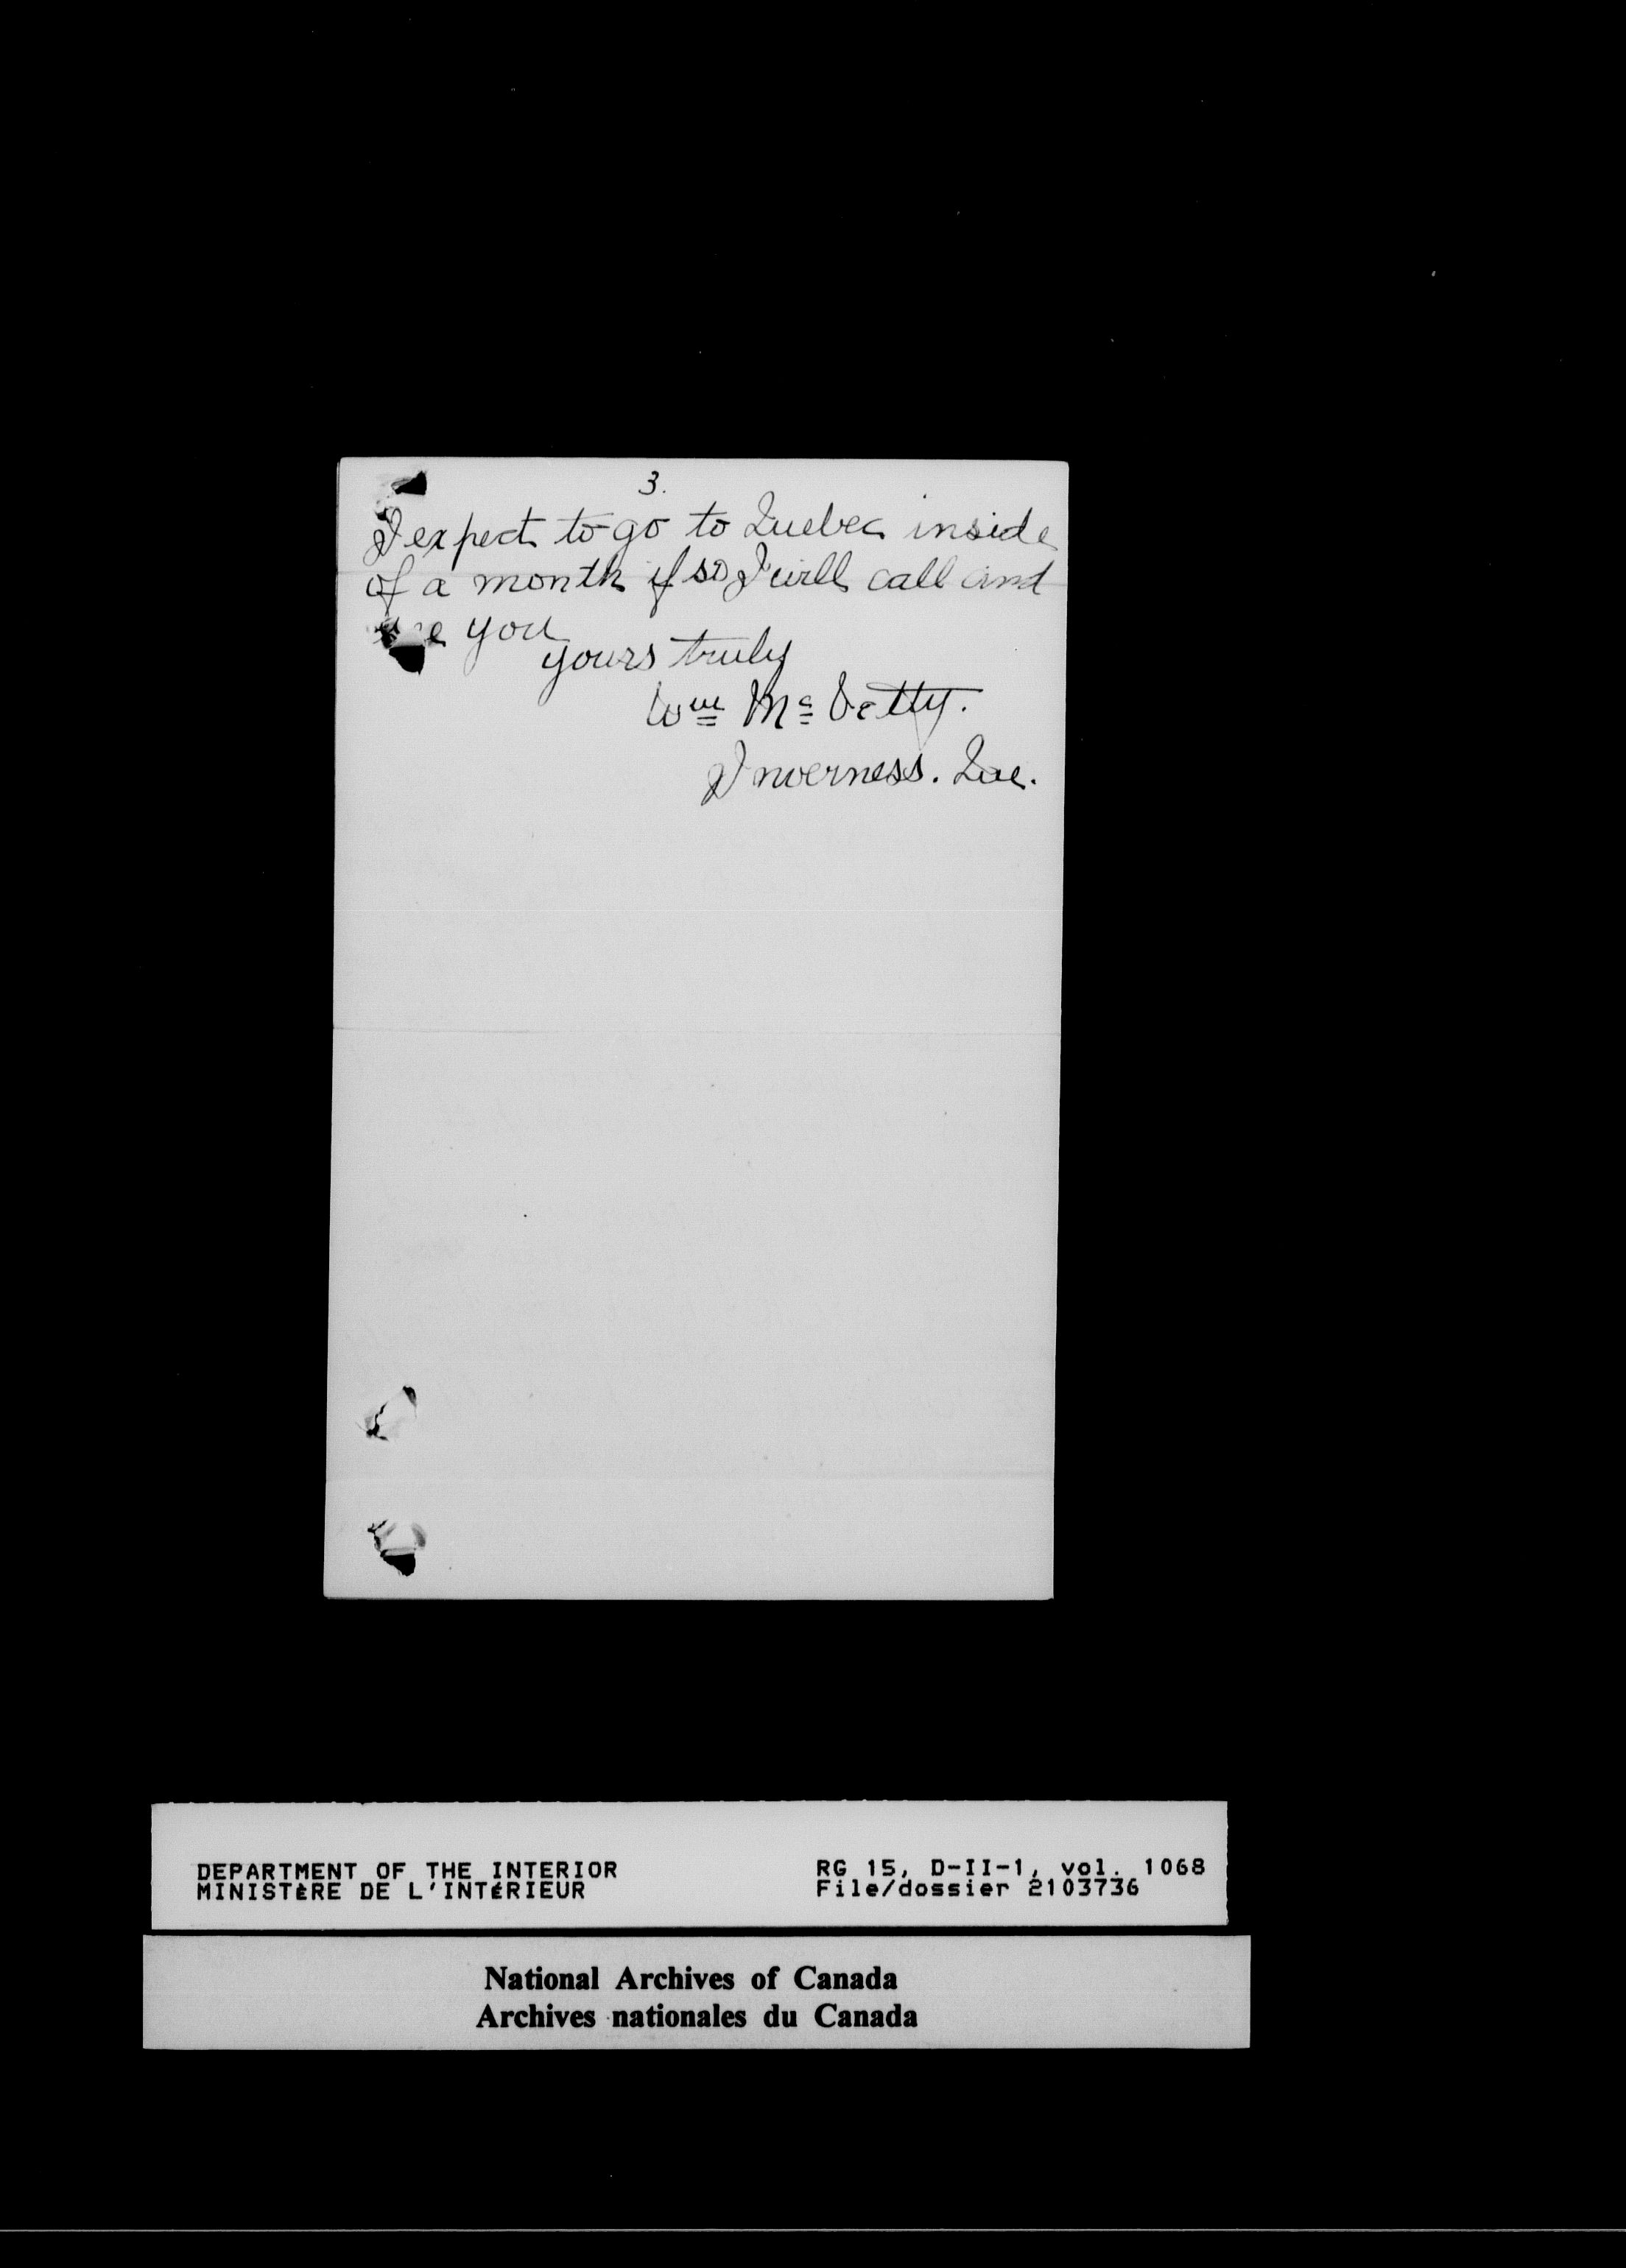 3.
I expect to go to Quebec inside
of a month if so I will call and
see you
yours truly
Wm Mc Vetty.
Inverness. Que.
DEPARTMENT OF THE INTERIOR
MINISTÈRE DE L'INTÉRIEUR
RG 15, D-II-1, vol. 1068
File/dossier 2103736
National Archives of Canada
Archives nationales du Canada